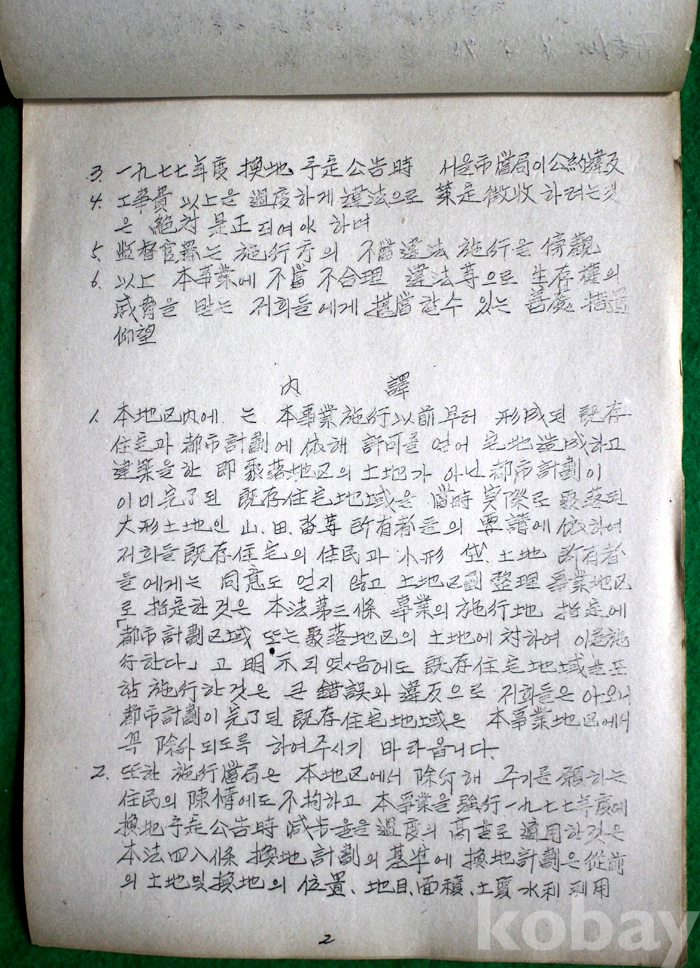 3. 一九七七年度 換地 予定公告時 서울市當局이 公約違反
4. 工事費 以上은 過度하게 違法으로 策定 徵收 하려는것
은 絶対 是正 되여야 하며
5. 監督官署는 施行庁의 不當違法 施行을 傍觀
6. 以上 本事業에 不當 不合理 違法等으로 生存權의
威脅을 받는 저희들에게 堪當할수 있는 善處 措置
仰望
內 譯
1. 本地区内에는 本事業施行以前부터 形成된 既存
住宅과 都市計劃에 依해 許可를 얻어 宅地造成하고
建築을한 即 聚落地区의 土地가 아닌 都市計劃이
이미 完了된 既存住宅地域을 當時 實際로 聚落된
大形土地인 山.田.畓等 所有者들의 要請에 依하여
저희들 既存住宅의 住民과 小形 垈.土地 所有者
들에게는 同意도 얻지 않고 土地区劃整理事業地区
로 指定한것은 本法第三條 事業의 施行地 指定에
「都市計劃区域 또는 聚落地区의 土地에 対하여 이를施
行한다」고 明示되엿음에도 既存住宅地域을 포
함 施行한것은 큰 錯誤와 違反으로 저희들은 아오니
都市計劃이 完了된 既存住宅地域은 本事業地区에서
꼭 除外되도록 하여주시기 바라옵니다.
2. 또한 施行當局은 本地区에서 除外해 주기를 願하는
住民의 陳情에도 不拘하고 本事業을 強行 一九七七年度에
換地予定公告時 減步율을 過度의 高율로 適用한것은
本法四八條 換地計劃의 基準에 換地計劃은 從前
의 土地 및 換地의 位置、地目、面積、土質 水利 利用
2
kobay